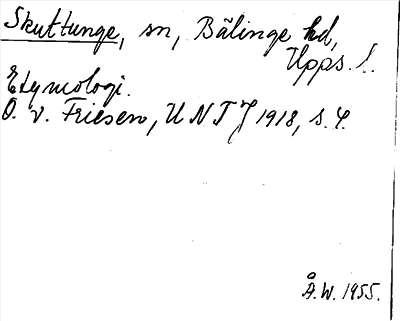 Skuttunge, sn, Bälinge hd,
Upps. l.
Etymologi.
O. v. Friesen, UNTJ 1918, s. 4.
Å.W. 1955.